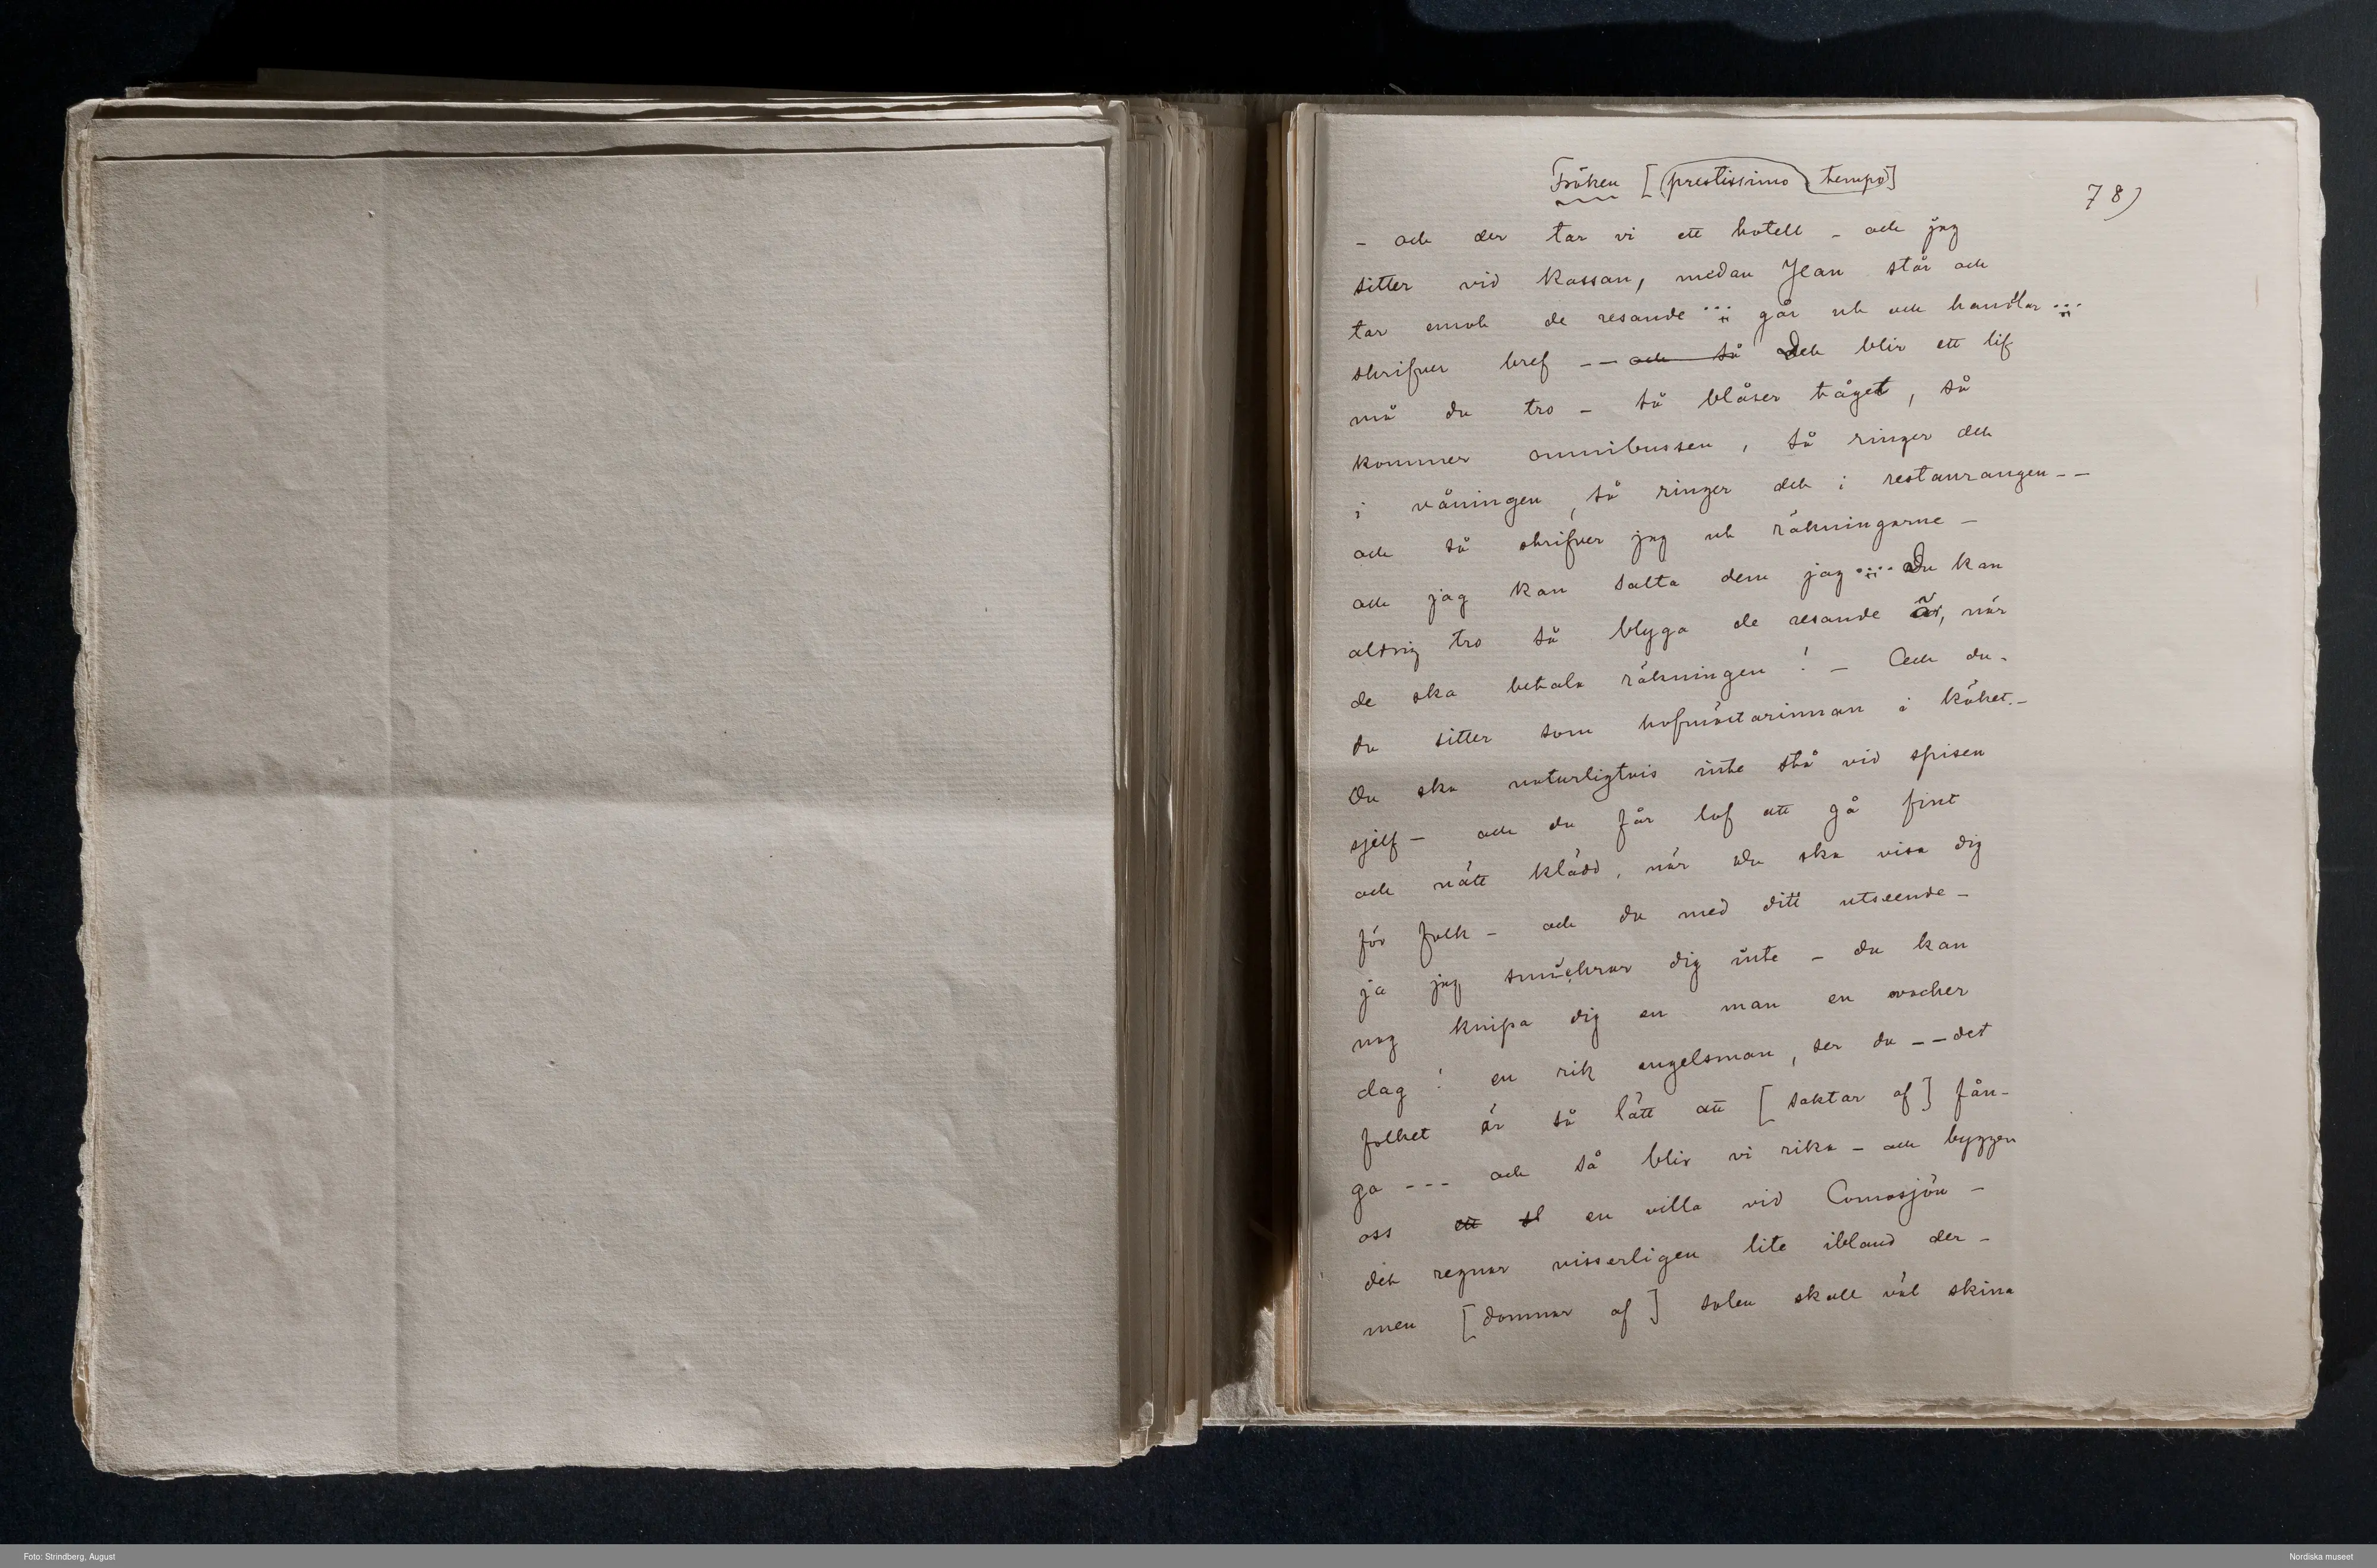 Fröken [(prestissimo tempo]
78)
– och der tar vi ett hotell – och jag
sitter vid kassan, medan Jean står och
tar emot de resande ... går ut och handlar ...
skrifver bref – – och så Det blir ett lif
må du tro – så blåser tåget, så
kommer omnibussen, så ringer det
i våningen, så ringer det i restaurangen – –
och så skrifver jag ut räkningarne –
och jag kan salta dem jag ... Du kan
aldrig tro så blyga de resande är, när
de ska betala räkningen! – Och du –
du sitter som hofmästarinnan i köket. –
Du ska naturligtvis inte stå vid spisen
sjelf – och du får lof att gå fint
och nätt klädd, när du ska visa dig
för folk – och du med ditt utseende –
ja jag smickrar dig inte – du kan
nog knipa dig en man en vacker
dag! en rik engelsman, ser du – – det
folket är så lätt att [saktar af] fån-
ga – – – och så blir vi rika – och bygger
oss ett sl en villa vid Comosjön –
det regnar visserligen lite ibland der –
men [domnar af] solen skall väl skina
Foto: Strindberg, August
Nordiska museet